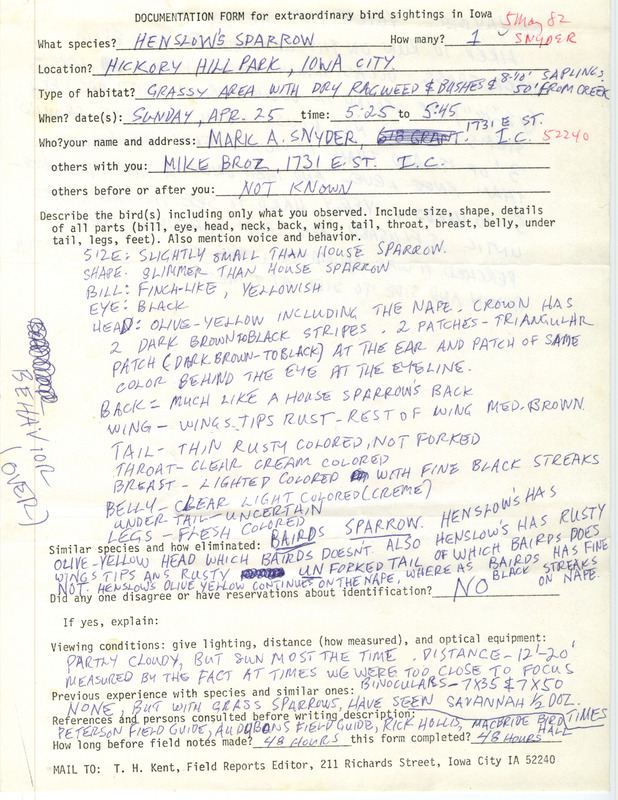 DOCUMENTATION FORM for extraordinary bird sightings in Iowa 5 May 82
What species? HENSLOW'S SPARROW How many? 1 SNYDER
Location? HICKORY HILL PARK, IOWA CITY
Type of habitat? GRASSY AREA WITH DRY RAGWEED & BUSHES & 8-10' SAPLINGS. 50' FROM CREEK
When? date(s): SUNDAY, APR. 25 time: 5:25 to 5:45
Who? your name and address: MARK A. SNYDER, 618 GRANT. 1731 E ST. I.C. 52240
others with you: MIKE BROZ, 1731 E. ST. I.C.
others before or after you: NOT KNOWN
Describe the bird(s) including only what you observed. Include size, shape, details
of all parts (bill, eye, head, neck, back, wing, tail, throat, breast, belly, under
tail, legs, feet). Also mention voice and behavior.
SIZE: SLIGHTLY SMALL THAN HOUSE SPARROW.
SHAPE: SLIMMER THAN HOUSE SPARROW
BILL: FINCH-LIKE, YELLOWISH
EYE: BLACK
HEAD: OLIVE-YELLOW INCLUDING THE NAPE. CROWN HAS
2 DARK BROWN TO BLACK STRIPES. 2 PATCHES-TRIANGULAR
PATCH (DARK BROWN-TO BLACK) AT THE EAR AND PATCH OF SAME
COLOR BEHIND THE EYE AT THE EYELINE.
BACK = MUCH LIKE A HOUSE SPARROW'S BACK
WING - WINGS TIPS RUST - REST OF WING MED. BROWN.
TAIL - THIN RUSTY COLORED, NOT FORKED
THROAT - CLEAR CREAM COLORED
BREAST - LIGHTED COLORED WITH FINE BLACK STREAKS
BELLY - CLEAR LIGHT COLORED (CREME)
UNDER TAIL - UNCERTAIN
LEGS - FLESH COLORED
BEHAVIOR
(OVER)
Similar species and how eliminated: BAIRDS SPARROW. HENSLOW'S HAS
OLIVE-YELLOW HEAD WHICH BAIRDS DOESN'T. ALSO HENSLOW'S HAS RUSTY
WINGS TIPS ANS RUSTY UNFORKED TAIL OF WHICH BAIRDS DOES
NOT. HENSLOW'S OLIVE YELLOW CONTINUES ON THE NAPE, WHERE AS BAIRDS HAS FINE
BLACK STREAKS ON NAPE.
Did any one disagree or have reservations about identification? NO
If yes, explain:
Viewing conditions: give lighting, distance (how measured), and optical equipment:
PARTLY CLOUDY, BUT SUN MOST THE TIME. DISTANCE - 12'-20'
MEASURED BY THE FACT AT TIMES WE WERE TOO CLOSE TO FOCUS
BINOCULARS - 7X35 & 7X50
Previous experience with species and similar ones:
NONE, BUT WITH GRASS SPARROWS, HAVE SEEN SAVANNAH 1/2 DOZ. TIMES
References and persons consulted before writing description:
PETERSON FIELD GUIDE, AUDUBONS FIELD GUIDE, RICK HOLLIS, MACBRIDE BIRD HALL
How long before field notes made? 48 HOURS this form completed? 48 HOURS
MAIL TO: T. H. Kent, Field Reports Editor, 211 Richards Street, Iowa City IA 52240